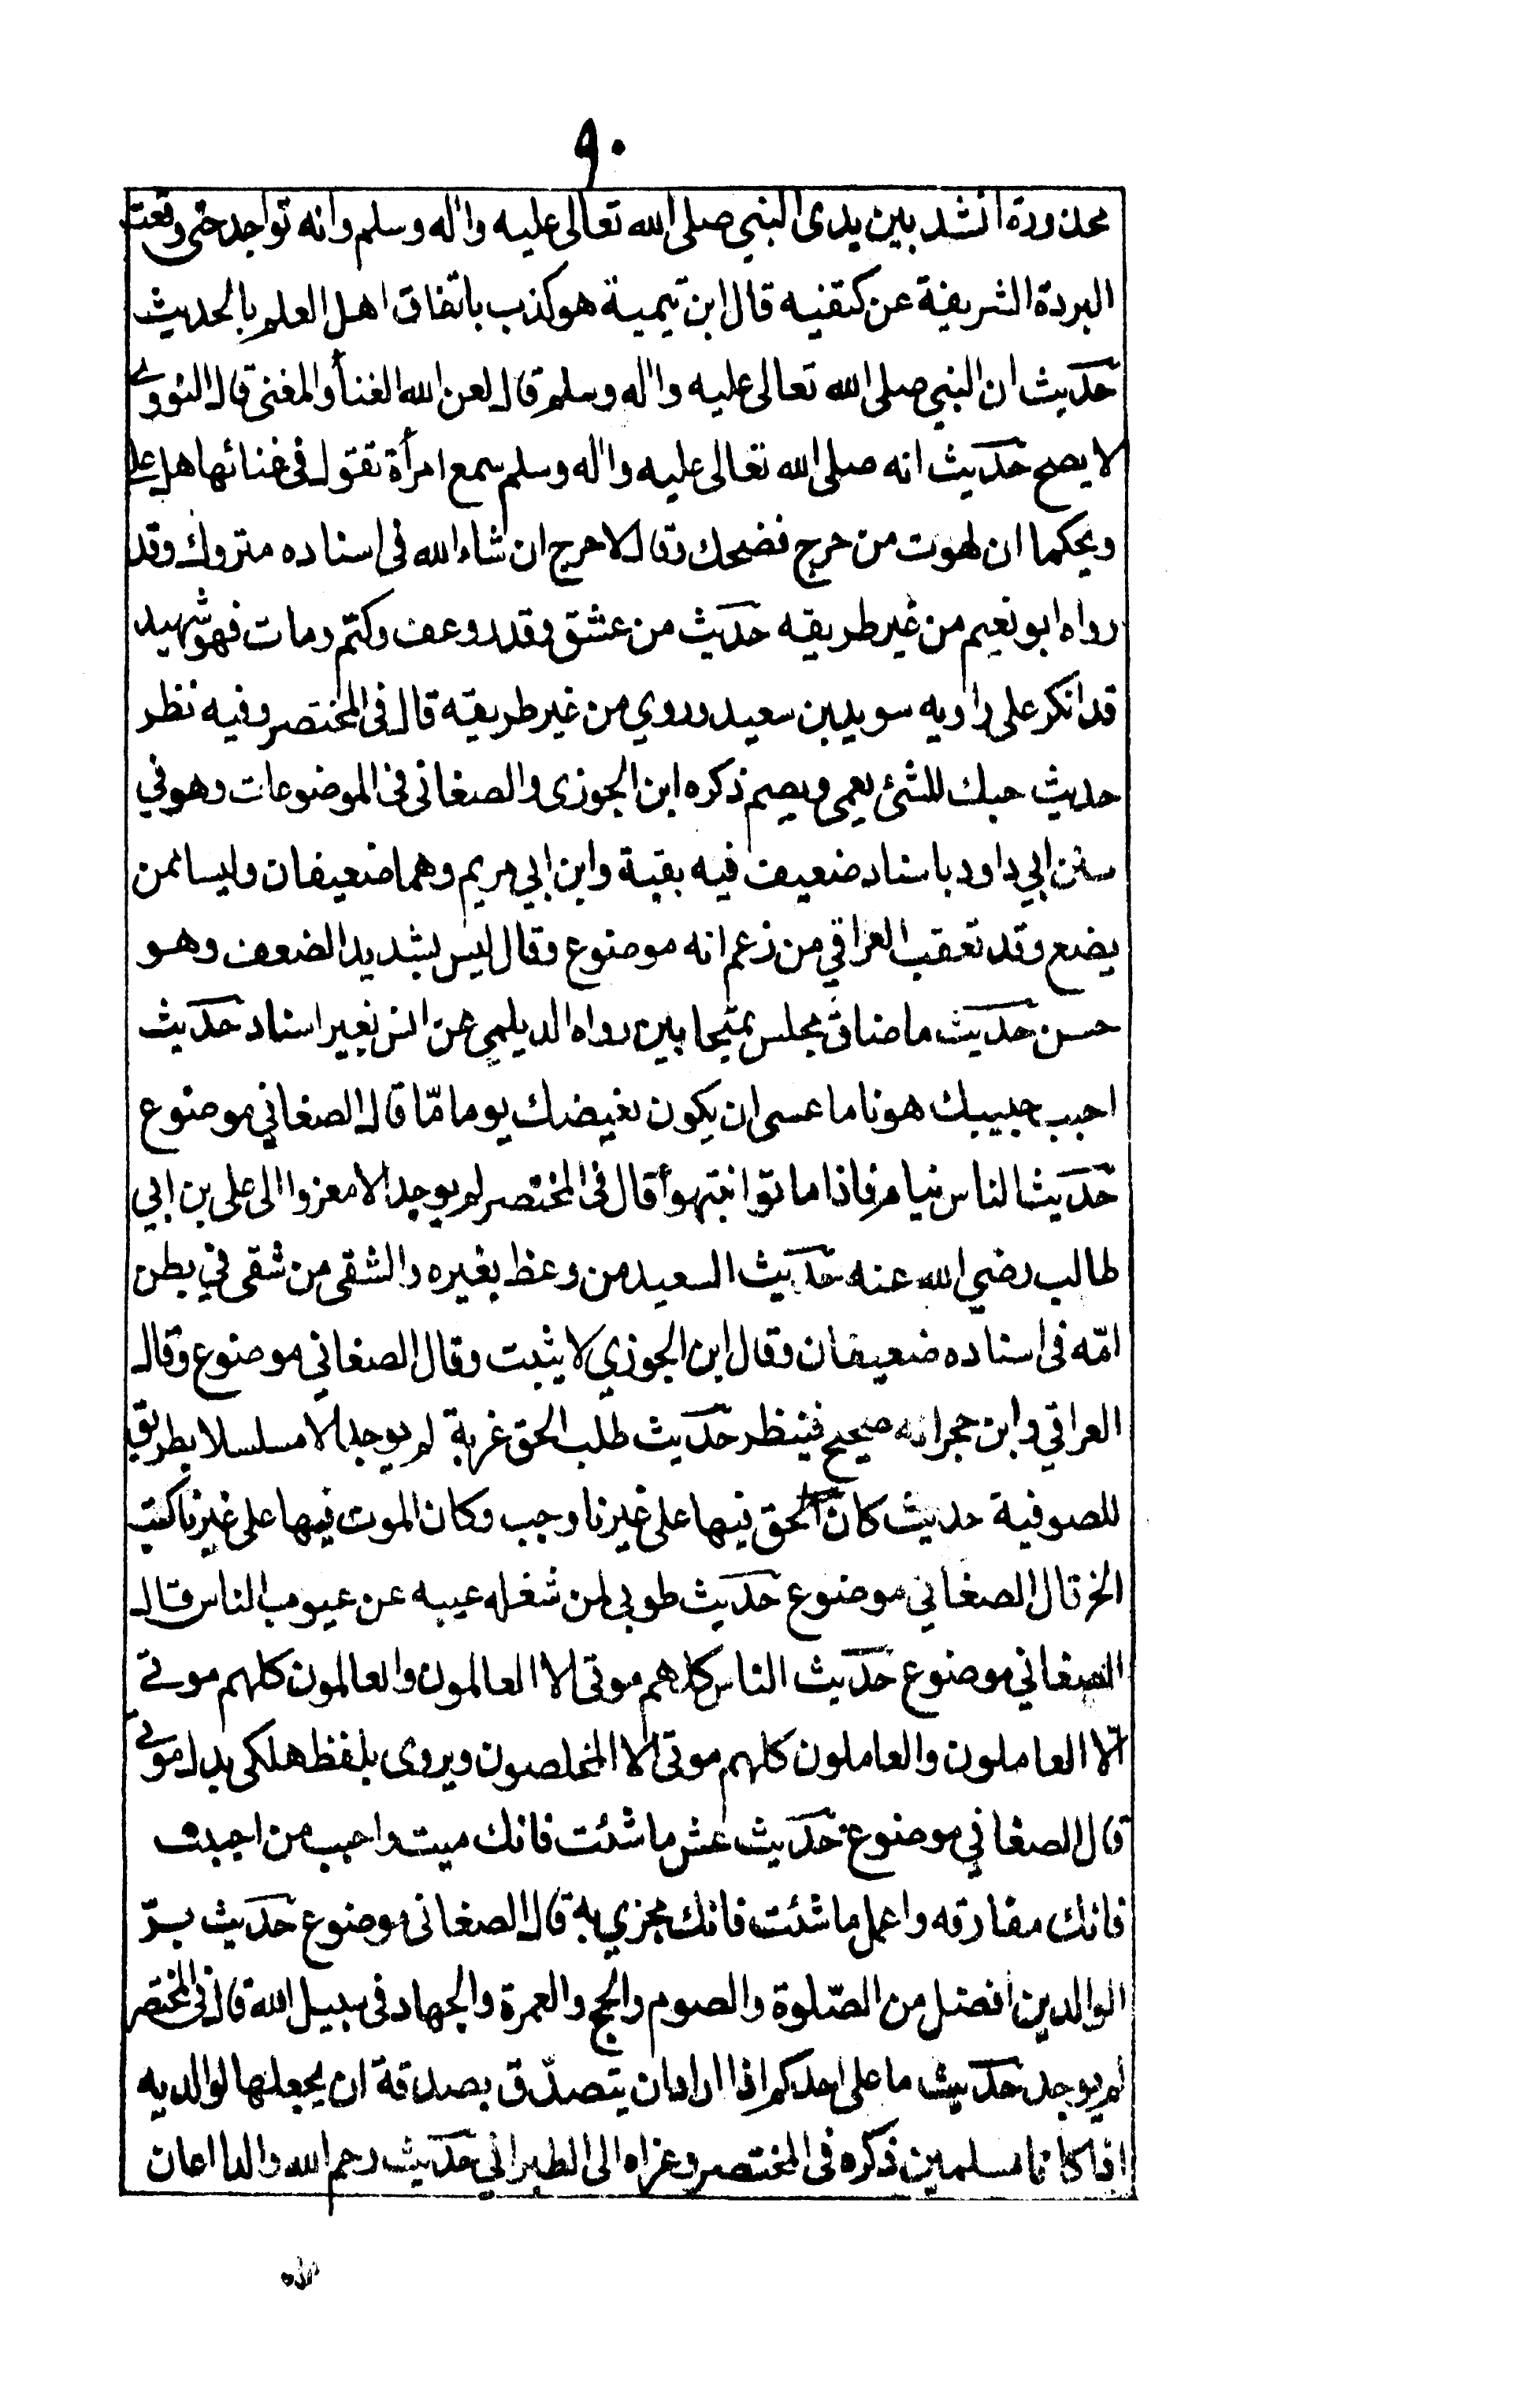 ٩٠
محذورة انشد بين يدى النبي صلى الله تعالى عليه واٰله وسلم وانه تواجد حتى وقعت
البردة الشريفة عن كتفيه قال ابن تيمية هو كذب باتفاق اهل العلم بالحديث
حديث ان النبي صلى الله تعالى عليه واٰله وسلم قال لعن الله الغنأ والمغنى قال النووى
لا يصح حديث انه صلى الله تعالى عليه واٰله وسلم سمع امرأة تقول فى غنائها هل على
ويحكما ان لهوت من حرج فضحك وقال لا حرج ان شاء الله فى اسناده متروك وقد
رواه ابو نعيم من غير طريقه حديث من عشق وقدر وعف وكتم ومات فهو شهيد
قد انكر على راويه سويد بن سعيد وروي من غير طريقه قال فى المختصر وفيه نظر
حديث حبك للشئ يعمى ويصم ذكره ابن الجوزى والصغانى فى الموضوعات وهو في
سنن ابي داود باسناد ضعيف فيه بقية وابن ابي مريم وهما ضعيفان وليسا ممن
يضع وقد تعقب العراقي من زعم انه موضوع وقال ليس بشديد الضعف وهو
حسن حديث ما ضاق مجلس بمتحابين رواه الديلمي عن انس بغير اسناد حديث
احبب حبيبك هونا ما عسى ان يكون بغيضك يوما مّا قال الصغاني موضوع
حديث الناس نيام فاذا ماتوا انتبهوأ قال فى المختصر لم يوجد الا معزوا الى على بن ابي
طالب رضي الله عنه حديث السعيد من وعظ بغيره والشقى من شقى في بطن
امّه فى اسناده ضعيفان وقال ابن الجوزي لا يثبت وقال الصغاني موضوع وقال
العراقي وابن حجر انه صحيح فينظر حديث طلب الحق غربة لم يوجد الا مسلسلا بطريق
للصوفية حديث كان الحق فيها على غيرنا وجب وكان الموت فيها على غيرنا كتب
الخ قال الصغاني موضوع حديث طوبى لمن شغله عيبه عن عيوب الناس قال
الصغاني موضوع حديث الناس كلهم موتى الا العالمون والعالمون كلهم موتى
الّا العاملون والعاملون كلهم موتى الا المخلصون ويروى بلفظ هلكى بدل موتى
قال الصغاني موضوع حديث عش ما شئت فانك ميت واحبب من احببت
فانك مفارقه واعمل ما شئت فانك مجزي به قال الصغانى موضوع حديث برّ
الوالدين افضل من الصّلوة والصوم والحج والعمرة والجهاد فى سبيل الله قال فى المختصر
لم يوجد حديث ما على احدكم اذا اراد ان يتصدّق بصدقة ان يجعلها لوالديه
اذا كانا مسلمين ذكره فى المختصر وعزاه الى الطبراني حديث رحم الله والدا اعان